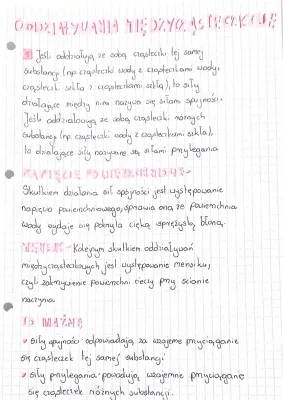 ODDZIAŁYWANIA MIĘDZYCZĄSTECZKOWE
Jeśli oddziałują ze sobą cząsteczki tej samej
substancji (np cząsteczki wody z cząsteczkami wody,
cząsteczki szkła z cząsteczkami szkła), to siły
działające między nimi nazywa się siłami spójności.
Jeśli oddziałowują ze sobą cząsteczki różnych
substancji (np cząsteczki wody z cząsteczkami szkła),
to działające siły nazywane są siłami przylegania
NAPIĘCIE POWIERZCHNIOWE-
Skutkiem działania sił spójności jest występowanie
napięcia powierzchniowego, sprawia ono, że powierzchnia
wody wydaje się pokryta cienką, sprężystą błoną.
MENISK - Kolejnym skutkiem oddziaływań
międzycząsteczkowych jest występowanie menisku,
czyli zakrzywienie powierzchni cieczy przy ścianie
naczynia
TO WAŻNE
siły spójności - odpowiadają za wzajemne przyciąganie
się cząsteczek tej samej substancji
siły przylegania - powodują wzajemne przyciąganie
się cząsteczek różnych substancji.